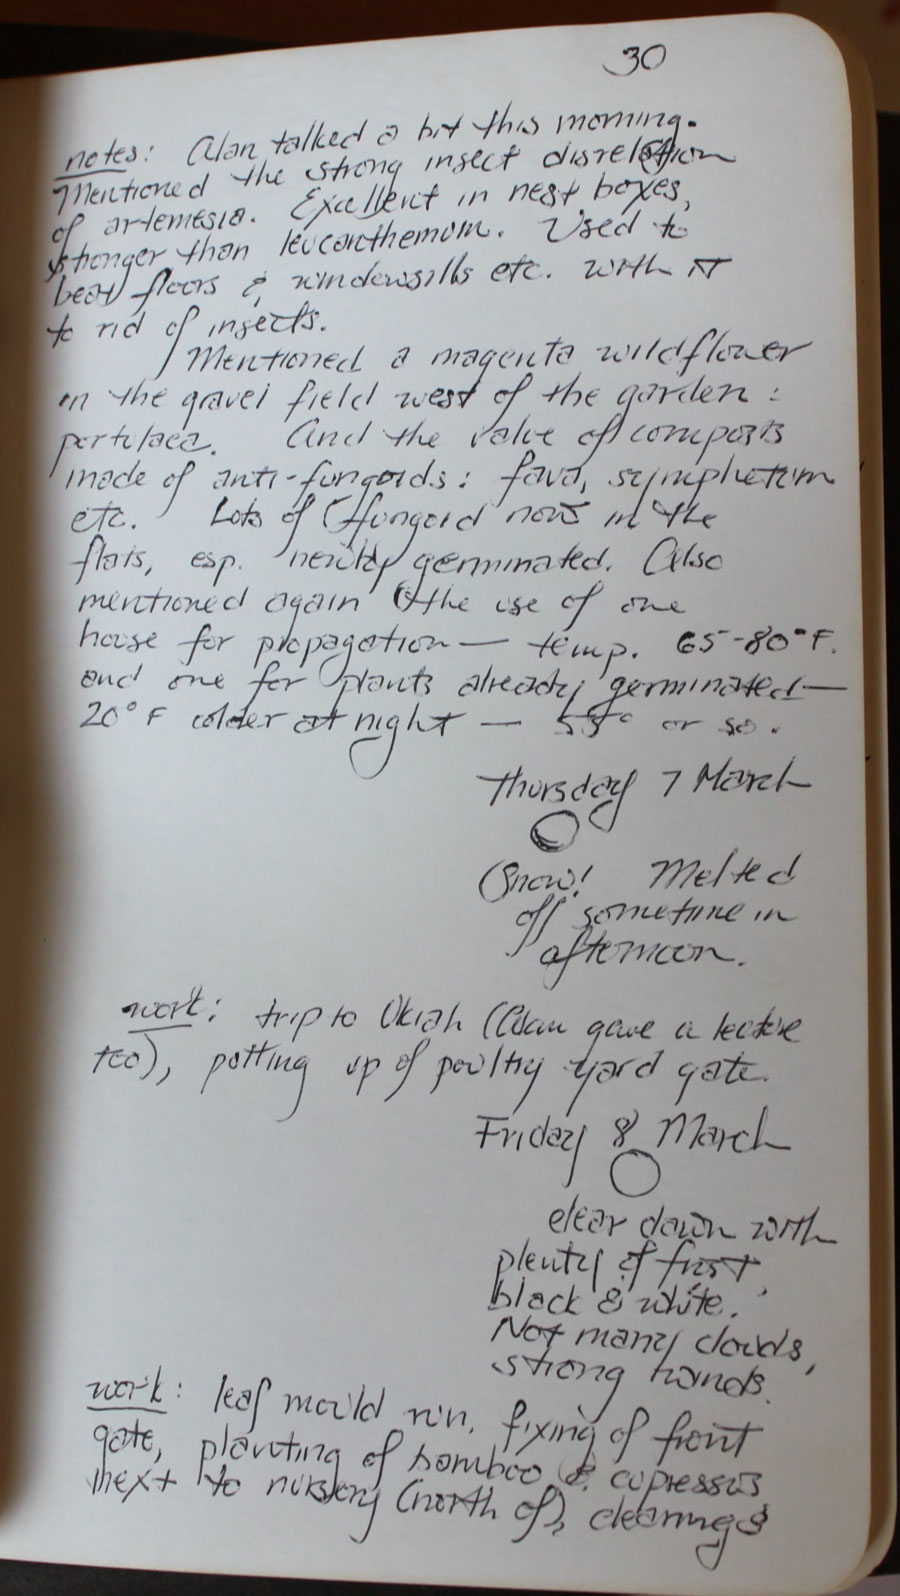 30
notes: Alan talked a bit this morning.
Mentioned the strong insect disrelation
of artemesia. Excellent in nest boxes,
stronger than leucanthemum. Used to
beat floors & windowsills etc. with it
to rid of insects.
Mentioned a magenta wildflower
in the gravel field west of the garden:
portulaca. And the value of composts
made of anti-fungoids: fava, symphetum
etc. Lots of fungoid now in the
flats, esp. newly germinated. Also
mentioned again the use of one
house for propagation — temp. 65-80°F.
and one for plants already germinated —
20°F colder at night — 55° or so.
Thursday 7 March
Snow! Melted
off sometime in
afternoon.
work: trip to Ukiah (Alan gave a lecture
too), putting up of poultry yard gate.
Friday 8 March
clear dawn with
plenty of frost,
black & white.
Not many clouds,
strong winds.
work: leaf mould run, fixing of front
gate, planting of bamboo & cupressus
next to nursery (north of), clearing &